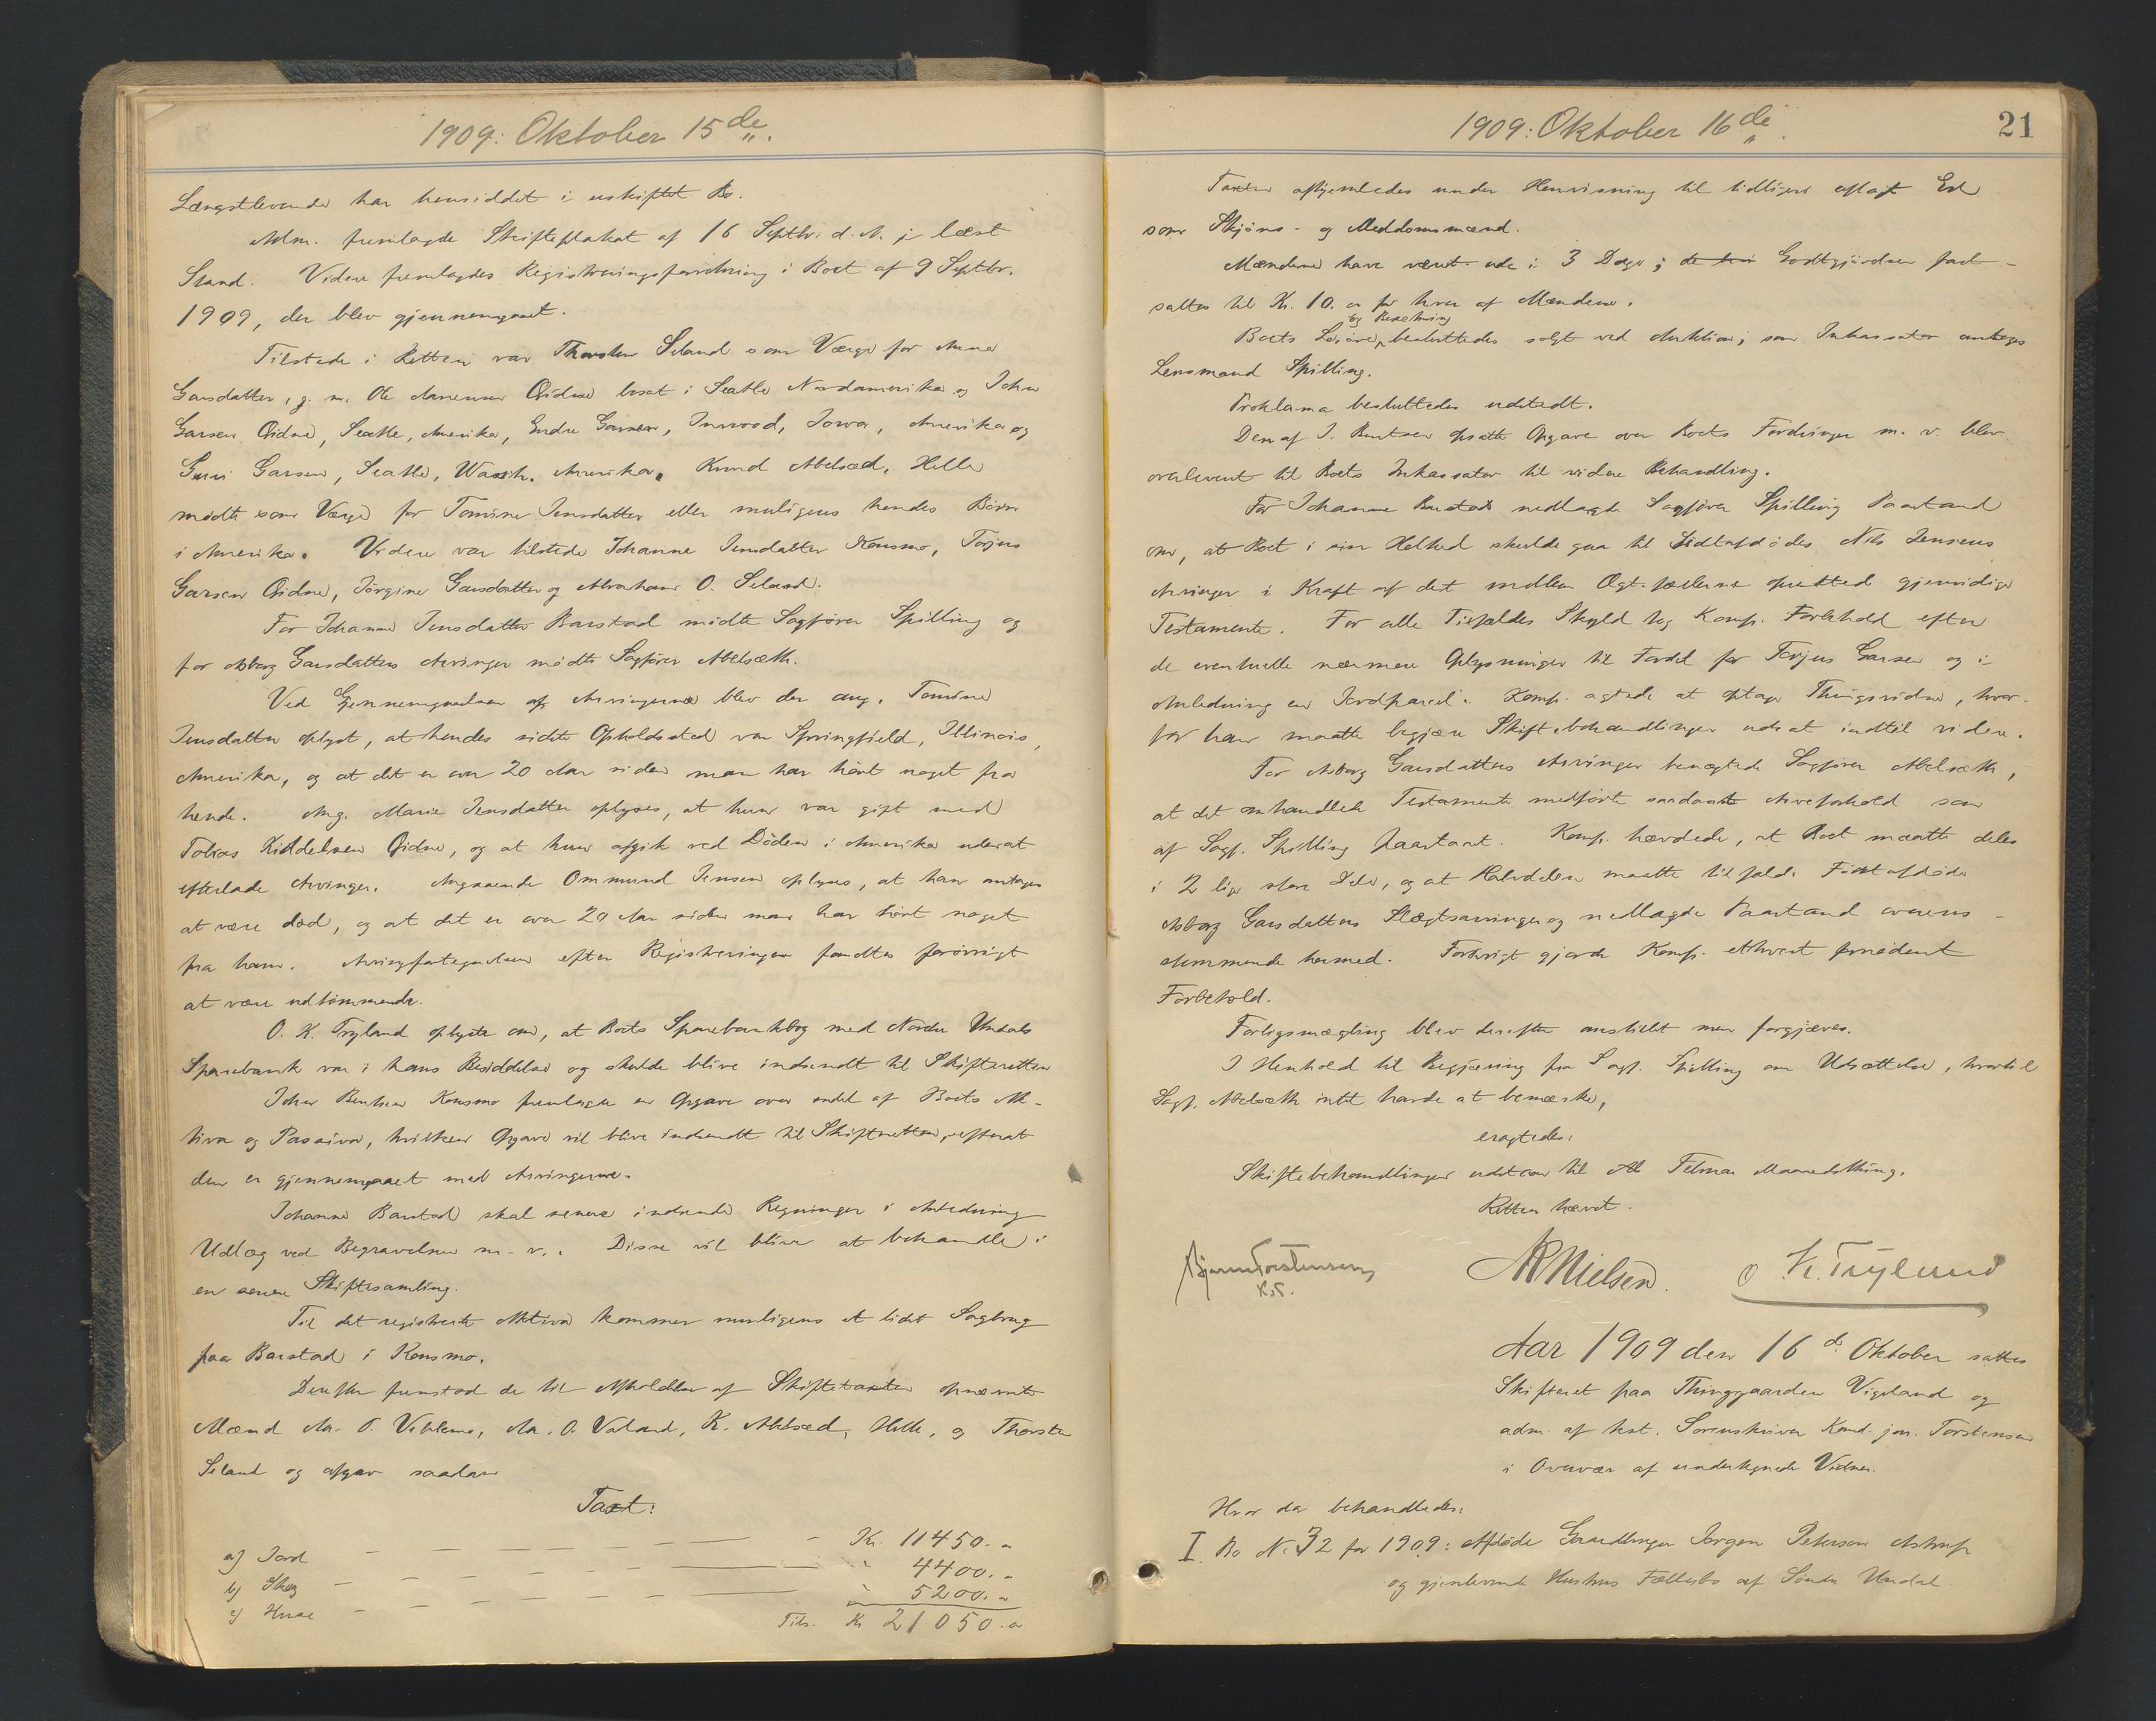 1909: Oktober 15de.
Længstlevende har hensiddet i uskiftet Bo.
Adm. fremlagde Skifteplakat af 16 Septbr. d. A. j læst
Stand. Videre fremlagdes Registreringsforretning i Boet af 9 Septbr.
1909, der blev gjennemgaaet.
Tilstede i Retten var Thorsten Seland som Værge for Anna
Garsdatter, g. m. Ole Aanensen Eidne bosat i Seatle Nordamerika og John
Garsen Eidne, Seatle, Amerika, Endre Garsen, Inwood, Iowa, Amerika og
Guri Garsen, Seatle, Wash. Amerika. Knud Abelsæd, Helle
mødte som Værge for Tomine Jensdatter eller muligens hendes Børn
i Amerika. Videre var tilstede Johanne Jensdatter Konsmo, Torjus
Garsen Eidne, Jørgine Garsdatter og Abraham O. Seland.
For Johanne Jensdatter Barstad mødte Sagfører Spilling og
for Asborg Garsdatters Arvinger mødte Sagfører Abelsæth.
Ved Gjennemgaaelsen af Arvingerne blev der ang. Tomine
Jensdatter oplyst, at hendes sidste Opholdssted var Springfield, Illinois,
Amerika, og at det er over 20 Aar siden man har hørt noget fra
hende. Ang. Marie Jensdatter oplyses, at hun var gift med
Tobias Kiddelsen Eidne, og at hun afgik ved Døden i Amerika uden at
efterlade Arvinger. Angaaende Ommund Jensen oplyses, at han antages
at være død, og at det er over 20 Aar siden man har hørt noget
fra ham. Arvingfortegnelsen efter Registreringen fandtes forøvrigt
at være udtømmende.
O. K. Tryland oplyste om, at Boets Sparebankbog med Nordre Undals
Sparebank var i hans Besiddelse og skulde blive indsendt til Skifteretten
John Bentsen Konsmo fremlagde en Opgave over endel af Boets Ak-
tiva og Passiva, hvilken Opgave vil blive indsendt til Skifteretten, efterat
den er gjennemgaaet med Arvingerne.
Johanne Barstad skal senere indsende Regninger i Anledning
Udlæg ved Begravelsen m. v.. Disse vil blive at behandle i
en senere Skiftesamling.
Til det registrerte Aktiva kommer muligens et lidet Sagbrug
paa Barstad i Konsmo.
Derefter fremstod de til Afholdelse af Skiftetaxten opnævnte
Mænd Aa. T. Viblemo, Aa. O. Valand, K. Abelsæd, Helle, og Thorsten
Seland og afgav saadan
Taxt:
a) Jord — — — Kr. 11450.-
b) Skog — — — " 4400.-
c) Huse — — — " 5200.-
Tils. Kr 21050.-
1909: Oktober 16de.
21
Taxten afhjemledes under Henvisning til tidligere aflagt Ed
som Skjøns- og Meddomsmænd.
Mændene have været ude i 3 Dage; Godtgjørelsen fast-
sattes til Kr. 10.- for hver af Mændene.
og Besætning
Boets Løsøre, besluttedes solgt ved Auktion; som Inkassator antages
Lensmand Spilling.
Proklama besluttedes udstedt.
Den af J. Bentsen opsatte Opgave over Boets Fordringer m. v. blev
overleveret til Boets Inkassator til videre Behandling.
For Johanne Barstad nedlagde Sagfører Spilling Paastand
om, at Boet i sin Helhed skulde gaa til Sidstafdødes Nils Jensens
Arvinger i Kraft af det mellem Ægtefællerne oprettede gjensidige
Testamente. For alle Tilfældes Skyld tog Komp. Forbehold efter
de eventuelle nærmere Oplysninger til Fordel for Torjus Garsen og i
Anledning en Jordparcel. Komp. agtede at optage Thingsvidne, hvor-
for han maatte begjære Skiftebehandlingen udsat indtil videre.
For Asborg Garsdatters Arvinger benægtede Sagfører Abelsæth,
at det omhandlede Testamente medførte saadant Arveforhold som
af Sagf. Spilling paastaat. Komp. hævdede, at Boet maatte deles
i 2 lige store Dele, og at Halvdelen maatte tilfalde Førstafdøde
Asborg Garsdatters Slægtsarvinger og nedlagde Paastand overens-
stemmende hermed. Forøvrigt gjorde Komp. ethvert fornødent
Forbehold.
Forligsmægling blev derefter anstillet men forgjæves.
I Henhold til Begjæring fra Sagf. Spilling om Udsættelse, hvortil
Sagf. Abelsæth intet havde at bemærke,
eragtedes:
Skiftebehandlingen udstaar til Februar Maanedsthing.
Retten hævet.
Bjarne Torstensen
K.S.
AR Nielsen.
O K. Tryland
Aar 1909 den 16de Oktober sattes
Skifteret paa Thinggaarden Vigeland og
adm. af kst. Sorenskriver Kand. jur. Torstensen
i Overvær af undertegnede Vidner.
Hvor da behandledes:
I. Bo N. 32 for 1909: Afdøde Gaardbruger Jørgen Petersen Astrup
og gjenlevende Hustrus Fællesbo af Søndre Undal